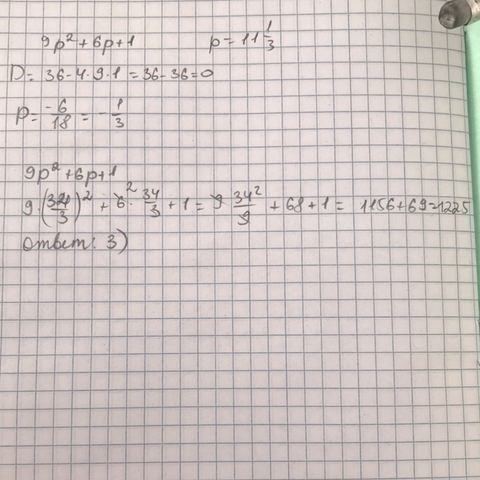 9p²+6p+1 p=11 1/3
D= 36-4·9·1=36-36=0
p= -6/18 = -1/3
9p²+6p+1
9·(34/3)² + 6² · 34/3 + 1 = 9 · 34²/9 + 68 + 1 = 1156+69=1225
ответ: 3)